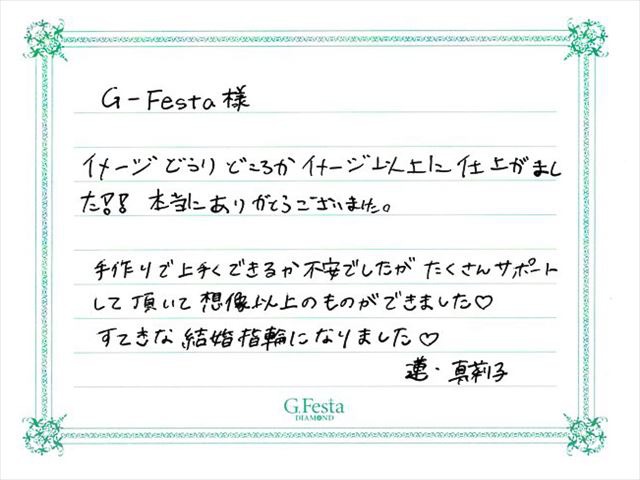 G-Festa様
イメージどうりどころかイメージ以上に仕上がまし
た!! 本当にありがとうございました。
手作りで上手くできるか不安でしたがたくさんサポート
して頂いて想像以上のものができました♡
すてきな結婚指輪になりました♡
蓮・真莉子
G.Festa
DIAMOND